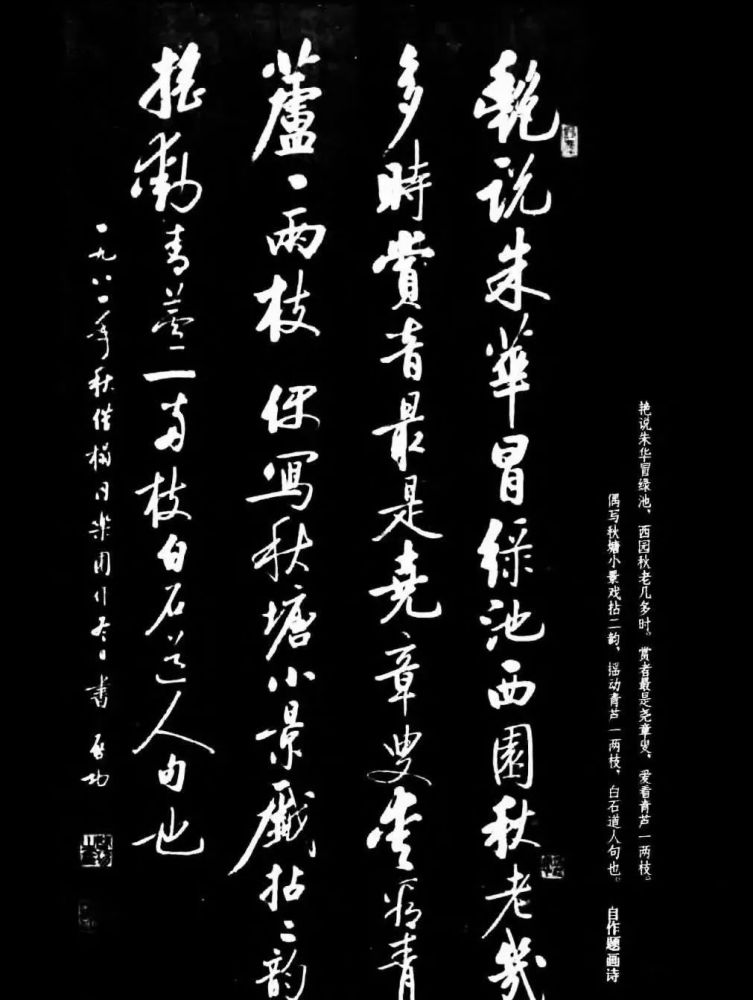 艳说朱华冒绿池、西园秋老几多时。赏者最是尧章叟、爱看青芦一两枝。
偶写秋塘小景戏拈二韵、摇动青芦一两枝、白石道人句也。 自作题画诗
艷説朱華冒綠池西園秋老幾
多時賞者最是堯章叟愛看青
蘆一兩枝 偶寫秋塘小景戲拈二韵
摇動青蘆一兩枝白石道人句也
一九八二年秋 書 启功